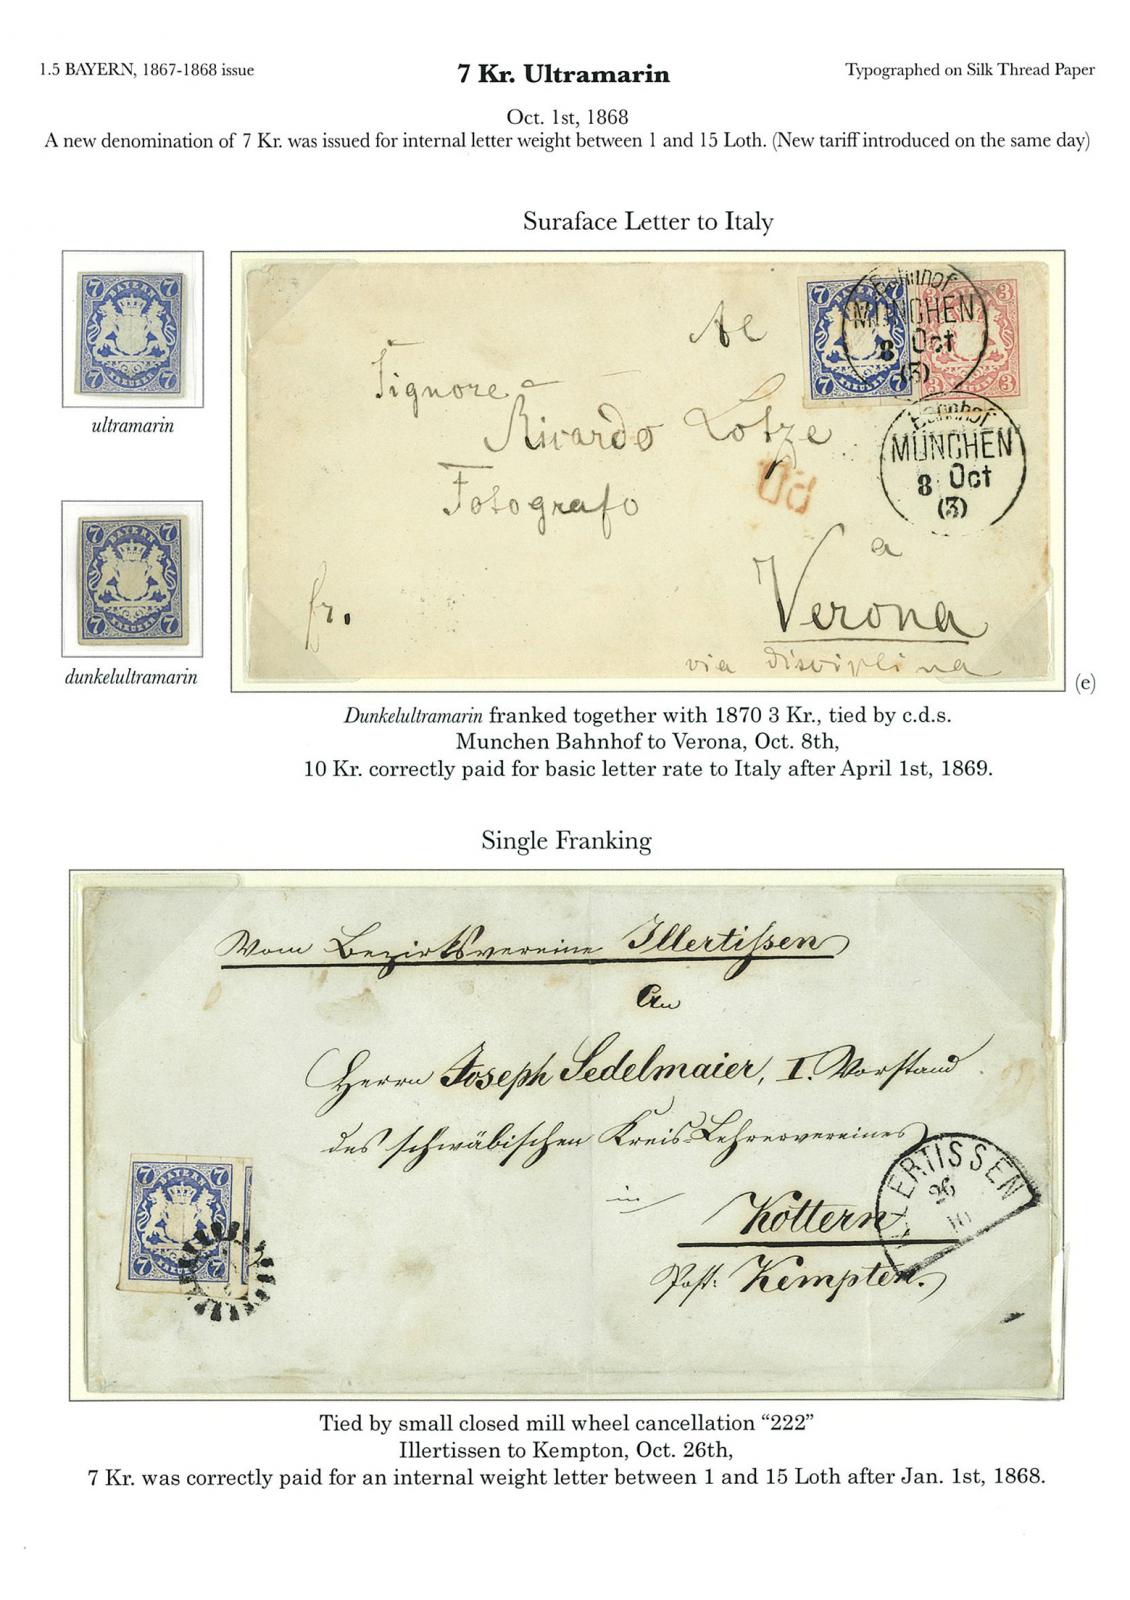 1.5 BAYERN, 1867-1868 issue
7 Kr. Ultramarin
Typographed on Silk Thread Paper
Oct. 1st, 1868
A new denomination of 7 Kr. was issued for internal letter weight between 1 and 15 Loth. (New tariff introduced on the same day)
Suraface Letter to Italy
7 7
BAYERN
7 KREUZER 7
ultramarin
7 7
BAYERN
7 KREUZER 7
dunkelultramarin
7 BAYERN
7 KREUZER 7
3
3 3
Bahnhof
MÜNCHEN
8 Oct
(3)
Bahnhof
MÜNCHEN
8 Oct
(3)
Al
Signore
Ricardo Lotze
Fotografo
PD
a
Verona
fr.
via disciplina
(e)
Dunkelultramarin franked together with 1870 3 Kr., tied by c.d.s.
Munchen Bahnhof to Verona, Oct. 8th,
10 Kr. correctly paid for basic letter rate to Italy after April 1st, 1869.
Single Franking
Vom Bezirksvereine Illertissen
An
Herrn Joseph Sedelmaier, I. Vorstand
des schwäbischen Kreis-Lehrervereines
in
Kottern
Post: Kempten.
7 7
BAYERN
7 KREUZER 7
ILLERTISSEN
26
10
Tied by small closed mill wheel cancellation “222”
Illertissen to Kempton, Oct. 26th,
7 Kr. was correctly paid for an internal weight letter between 1 and 15 Loth after Jan. 1st, 1868.